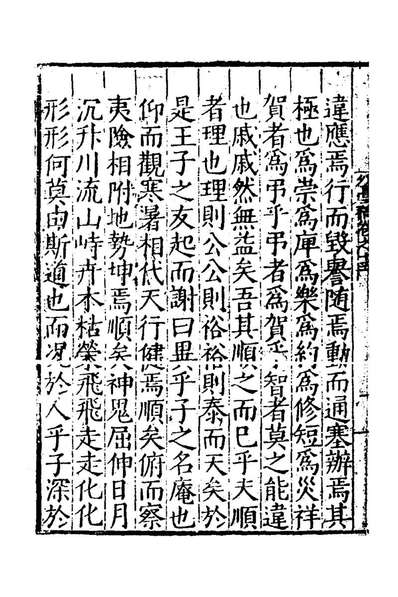 違應焉行而毀譽随焉動而通塞辦焉其
極也為崇為庳為樂為約為修短為災祥
賀者為弔乎弔者為賀乎智者莫之能違
也戚戚然無益矣吾其順之而已乎夫順
者理也理則公公則裕裕則泰而天矣於
是王子之友起而謝曰異乎子之名庵也
仰而觀寒暑相代天行健焉順矣俯而察
夷險相附地勢坤焉順矣神鬼屈伸日月
沉升川流山峙卉木枯榮飛飛走走化化
形形何莫由斯道也而况於人乎子深於